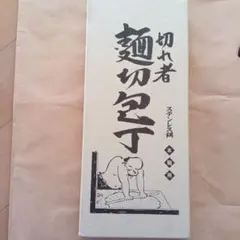 切れ者
麺切包丁
ステンレス鋼